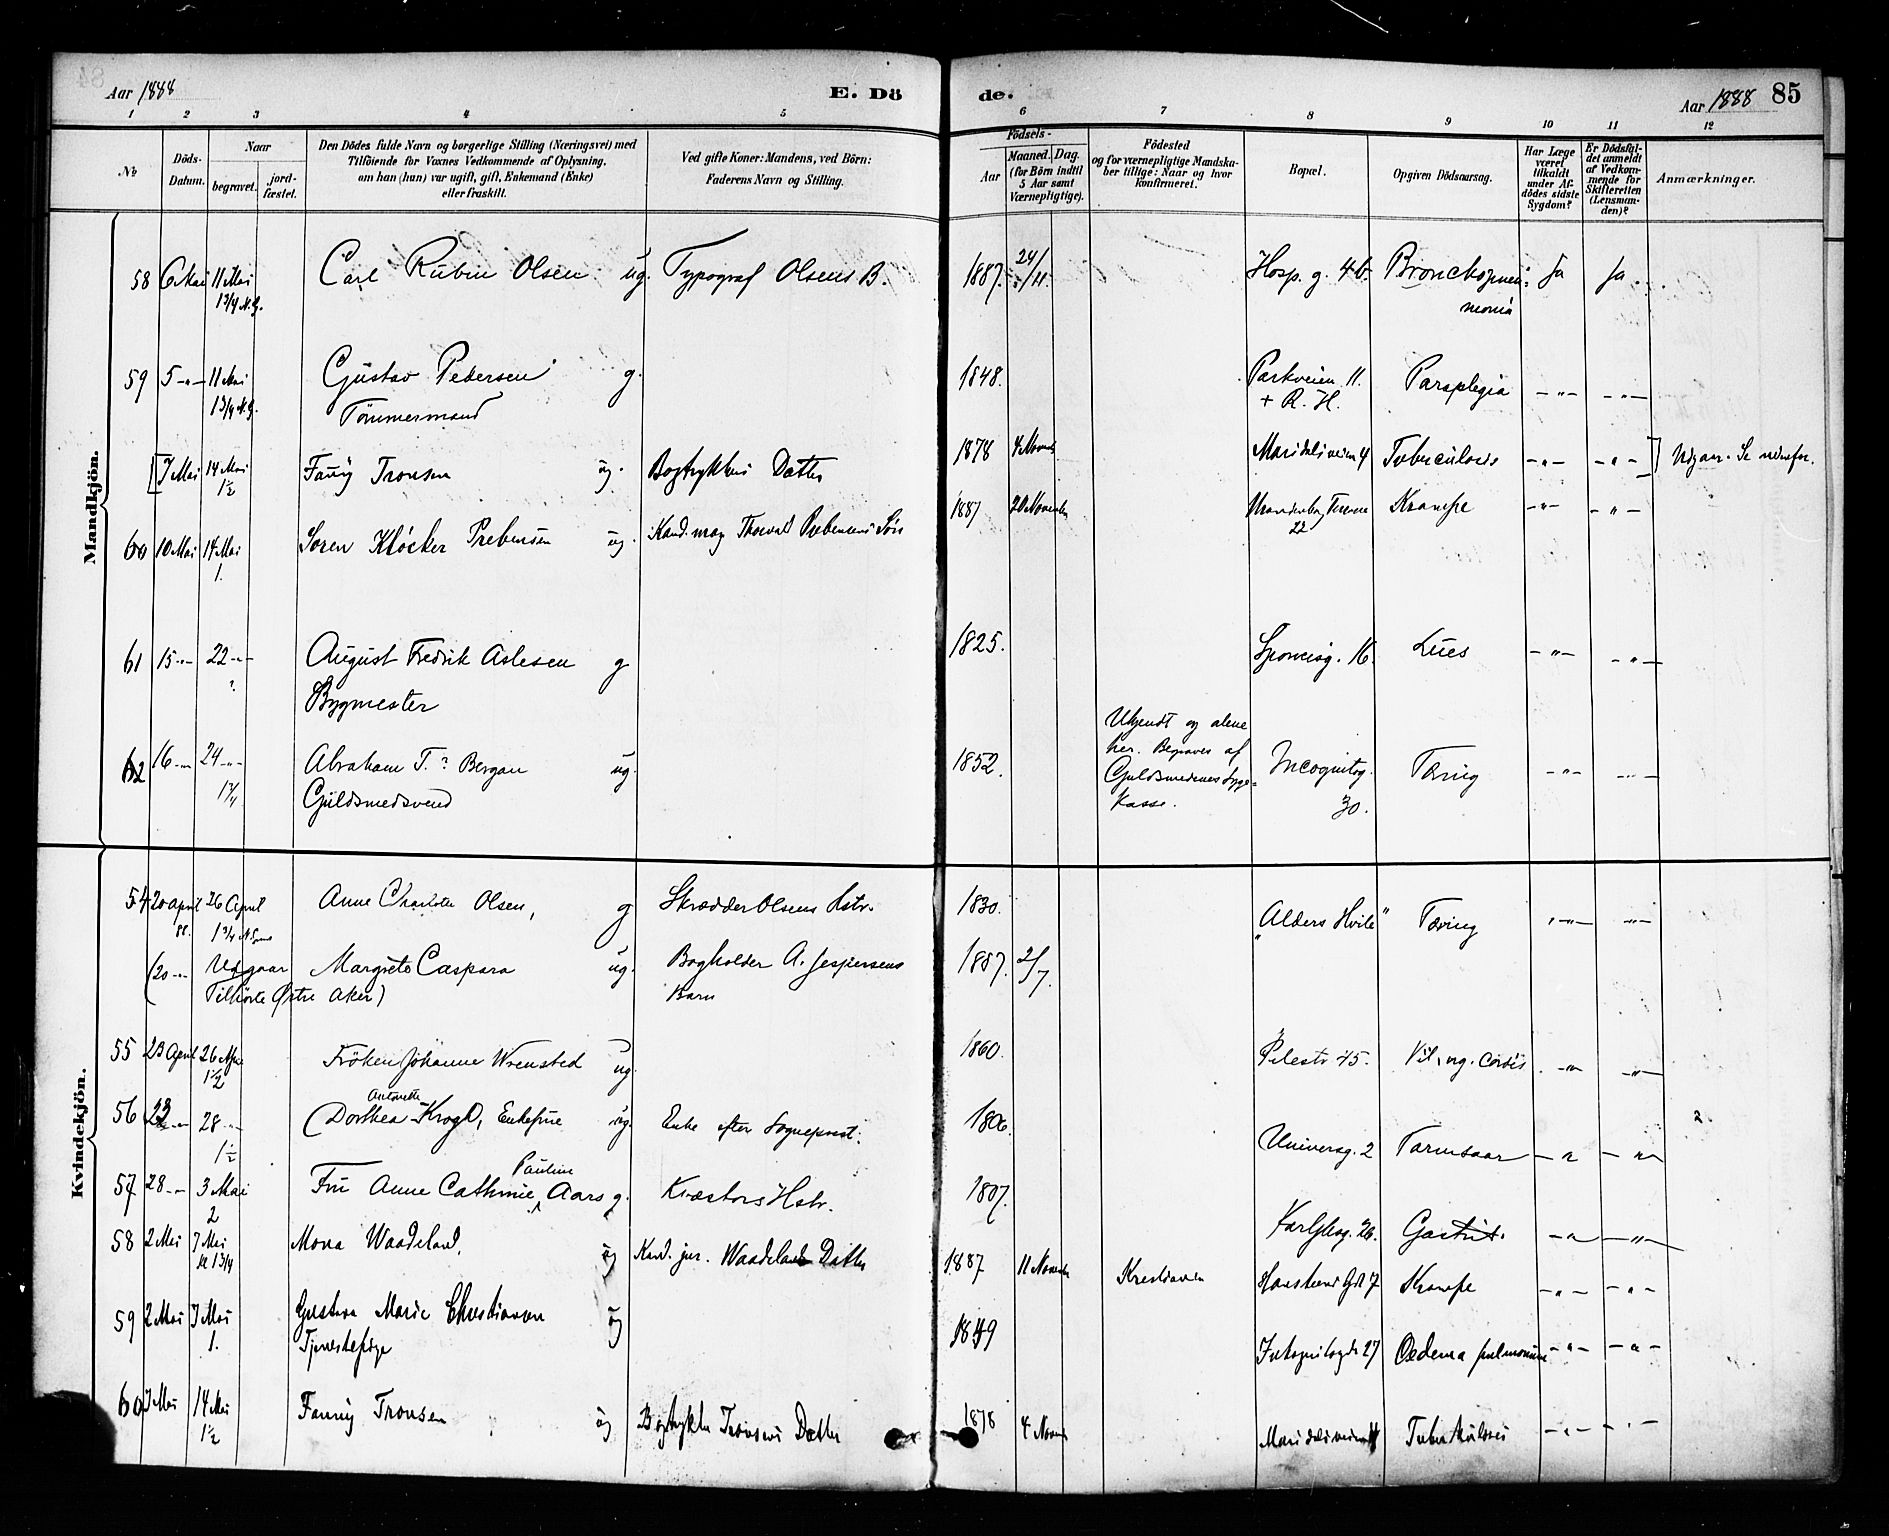 Aar 1888
E. Dö
de.
Aar 1888
85
1 2 3 4 5 6 7 8 9 10 11 12
No
Döds-
Datum.
Naar
begravet.
jord-
fæstet.
Den Dödes fulde Navn og borgerlige Stilling (Næringsvei) med
Tilföiende for Voxnes Vedkommende af Oplysning,
om han (hun) var ugift, gift, Enkemand (Enke)
eller fraskilt.
Ved gifte Koner: Mandens, ved Börn:
Faderens Navn og Stilling.
Födsels-
Aar
Maaned. Dag.
(for Börn indtil
5 Aar samt
Værnepligtige).
Födested
og for værnepligtige Mandska-
ber tillige: Naar og hvor
konfirmeret.
Bopæl.
Opgiven Dödsaarsag.
Har Læge
været
tilkaldt
under Af-
dödes sidste
Sygdom?
Er Dödsfal-
det anmeldt
af Vedkom-
mende for
Skifteretten
(Lensman-
den)?
Anmærkninger.
Mandkjön.
58 6 Mai 11 Mai Carl Rubin Olsen ug. Typograf Olsens B. 1887. 24/11. Hosp. g. 4b. Bronchopneu-
monia Ja Ja
1 3/4 N.G.
59 5 -"- 11 Mai Gustav Pedersen g. 1848. Parkveien 11. Paraplegia -"- -"-
1 3/4 N.G. Tømmermand + R. H.
[7 Mai 14 Mai Fanny Tronsen ug. Bogtrykkers Datter 1878 4 Novemb Maridalsveien 4 Tuberculosis -"- -"- ] Udgaar. Se nedenfor.
1 1/2
60 10 Mai 14 Mai Søren Kløcker Prebensen ug. Kand. mag Thorvald Prebensens Søn 1887 20 November 22 Krampe -"- -"-
1.
61 15 -"- 22 -"- August Fredrik Aslesen g 1825. 16. Lues -"- -"-
?
Bygmester
62 16 -"- 24 -"- Abraham T.? Bergan ug. 1852. Ukjendt og alene
her. Begraves af
Guldsmedenes Syge-
kasse. Incognitog.
30. Tæring -"- -"-
Guldsmedsvend
Kvindekjön.
54 20 April 26 April Anne Charlotte Olsen, g Skrædder Olsens Hstr. 1830. "Alders Hvile" Tæring -"- -"-
88. 1 3/4
(20 -"- Udgaar Margrete Caspara ug. Bogholder A. Jespersens 1887. 2/7.
Tilhørte Østre Aker) Barn
55 23 April 26 Apr Frøken Johanne Wrensted ug. 1860. Pilestr. 45. Vit. org. cordis -"- -"-
1 1/2
56 23 -"- 28 -"- Dorthea Antonette Krogh, Enkefrue ug. Enke efter Sogneprest. 1806. Universg. 2 Tarmsaar -"- -"-
1 1/2
57 28 -"- 3 Mai Fru Anne Cathrine Pauline Aars g. Kvæstors Hstr. 1807. 26. Gastrit. -"- -"-
2
58 2 Mai 7 Mai Mona Waadeland, ug Kand. jur. Waadelands Datter 1887 11 November Kristiania 7 Krampe -"- -"-
kl 1 3/4
59 2 Mai 7 Mai Gustava Marie Christiansen ug 1849 Inkognitogade 27 Oedema pulmonum -"- -"-
1. Tjenestepige
60 7 Mai 14 Mai Fanny Tronsen ug Bogtrykker Tronsens Datter 1878 4 Novemb Maridalsveien 4 Tuberkulosis -"- -"-
1 1/2